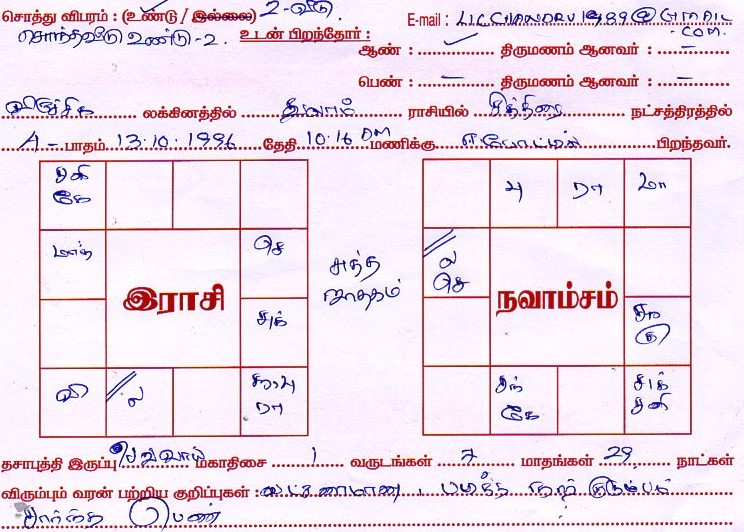 சொத்து விபரம் : (உண்டு / இல்லை) 2-வீடு E-mail : LICCHANDRU1989@GMAIL
.COM.
சொந்தவீடு உண்டு-2. உடன் பிறந்தோர் :
ஆண் : ✓ திருமணம் ஆனவர் : –
பெண் : – திருமணம் ஆனவர் : –
விருச்சிக லக்கினத்தில் துலாம் ராசியில் சித்திரை நட்சத்திரத்தில்
4- பாதம் 13.10.1996 தேதி 10.16 AM மணிக்கு பிறந்தவர்.
சனி
கே
பு ரா மா
மாந்
செ
சுத்த
ஜாதகம்
ல
செ
இராசி
நவாம்சம்
சுக்
சூ
கு
வி ல
சூ பு
ரா
சந்
கே
சுக்
சனி
தசாபுத்தி இருப்பு செவ்வாய் மகாதிசை 1 வருடங்கள் 7 மாதங்கள் 29 நாட்கள்
விரும்பும் வரன் பற்றிய குறிப்புகள் : லட்சணமான நல்ல குடும்பம்
சார்ந்த பெண்